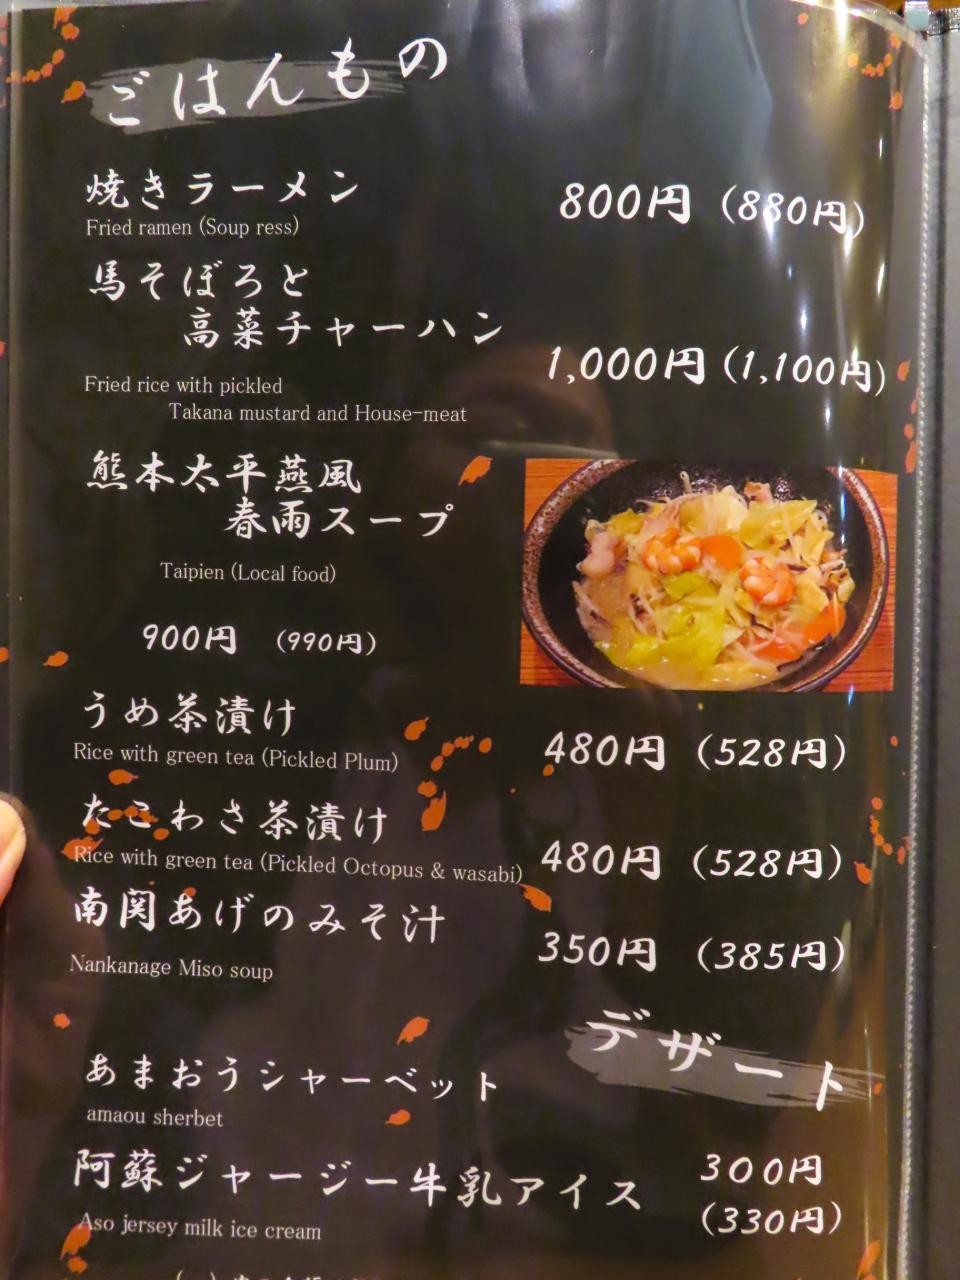 ごはんもの
焼きラーメン 800円 (880円)
Fried ramen (Soup ress)
馬そぼろと
高菜チャーハン
1,000円 (1,100円)
Fried rice with pickled
Takana mustard and House-meat
熊本太平燕風
春雨スープ
Taipien (Local food)
900円 (990円)
うめ茶漬け
Rice with green tea (Pickled Plum) 480円 (528円)
たこわさ茶漬け
Rice with green tea (Pickled Octopus & wasabi) 480円 (528円)
南関あげのみそ汁
Nankanage Miso soup 350円 (385円)
デザート
あまおうシャーベット
amaou sherbet
阿蘇ジャージー牛乳アイス
Aso jersey milk ice cream
300円
(330円)